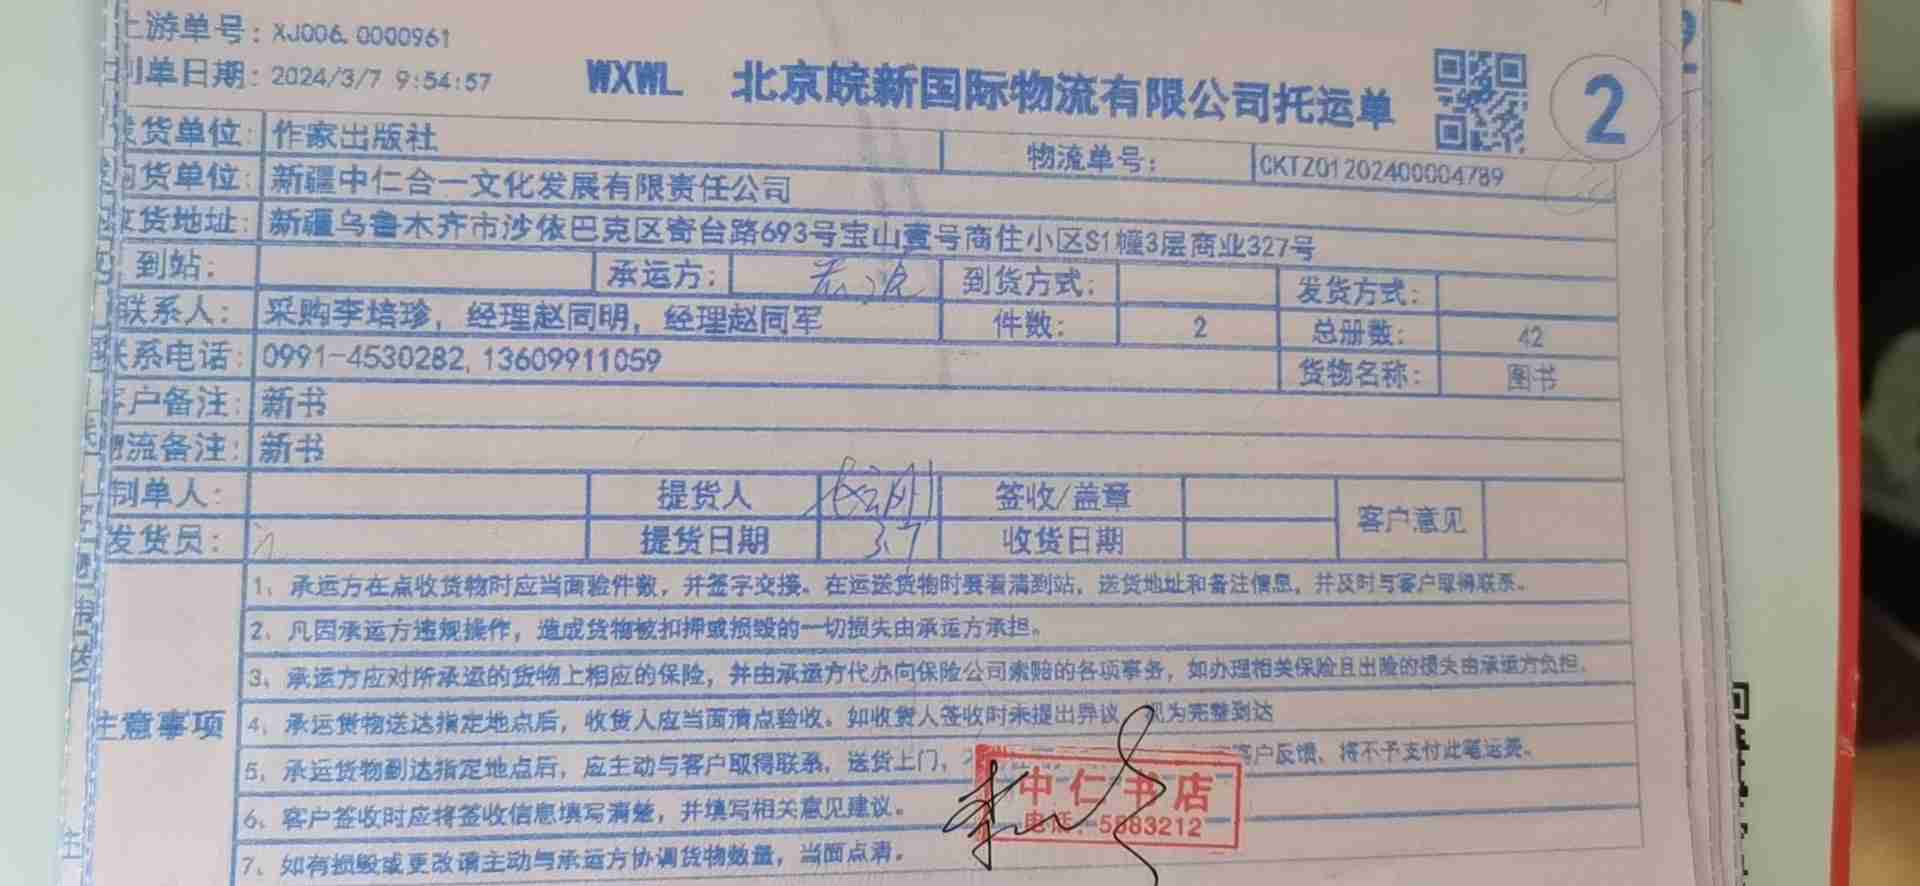 上游单号: XJ006.0000961
制单日期: 2024/3/7 9:54:57
WXWL 北京皖新国际物流有限公司托运单
2
货单位: 作家出版社 物流单号: CKTZ01202400004789
货单位: 新疆中仁合一文化发展有限责任公司
收货地址: 新疆乌鲁木齐市沙依巴克区奇台路693号宝山壹号商住小区S1幢3层商业327号
到站: 承运方: 到货方式: 发货方式:
联系人: 采购李培珍, 经理赵同明, 经理赵同军 件数: 2 总册数: 42
联系电话: 0991-4530282,13609911059 货物名称: 图书
客户备注: 新书
物流备注: 新书
制单人: 提货人 签收/盖章 客户意见
发货员: 提货日期 3.7 收货日期
注意事项
1、承运方在点收货物时应当面验件数，并签字交接。在运送货物时要看清到站，送货地址和备注信息，并及时与客户取得联系。
2、凡因承运方违规操作，造成货物被扣押或损毁的一切损失由承运方承担。
3、承运方应对所承运的货物上相应的保险，并由承运方代办向保险公司索赔的各项事务，如办理相关保险且出险的损失由承运方负担。
4、承运货物送达指定地点后，收货人应当面清点验收。如收货人签收时未提出异议 视为完整到达
5、承运货物到达指定地点后，应主动与客户取得联系，送货上门， 客户反馈，将不予支付此笔运费。
6、客户签收时应将签收信息填写清楚，并填写相关意见建议。
7、如有损毁或更改请主动与承运方协调货物数量，当面点清。
中仁书店
电话：5883212